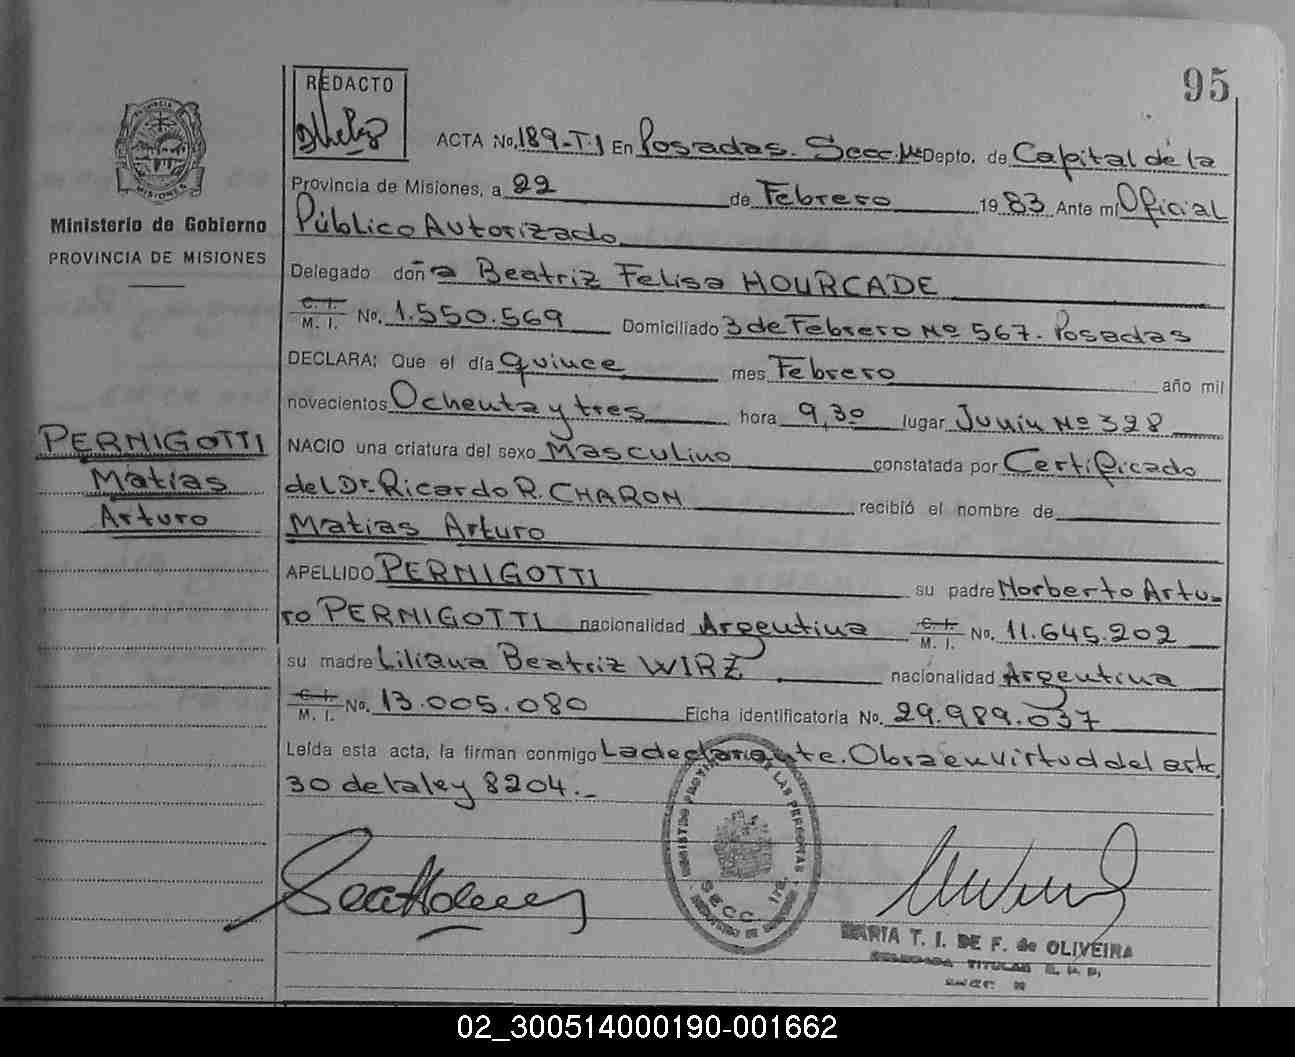 95
REDACTO
ACTA No. 189-T.I En Posadas. Secc. Depto. de Capital de la
Provincia de Misiones, a 22 de Febrero 1983 Ante mí Oficial
Público Autorizado
Delegado doña Beatriz Felisa HOURCADE
C. I.
M. I. No. 1.550.569 Domiciliado 3 de Febrero Nº 567. Posadas
DECLARA: Que el día quince mes Febrero año mil
novecientos Ochenta y tres hora 9,30 lugar Junín Nº 328
NACIO una criatura del sexo Masculino constatada por Certificado
del Dr. Ricardo R. CHARON recibió el nombre de
Matias Arturo
APELLIDO PERNIGOTTI su padre Norberto Artu-
ro PERNIGOTTI nacionalidad Argentina C. I. M. I. No. 11.645.202
su madre Liliana Beatriz WIRZ nacionalidad Argentina
C. I.
M. I. No. 13.005.080 Ficha identificatoria No. 29.989.037
Leída esta acta, la firman conmigo La declarante. Obra en virtud del art.
30 de la ley 8204.-
PROVINCIA
MISIONES
Ministerio de Gobierno
PROVINCIA DE MISIONES
PERNIGOTTI
Matias
Arturo
DE LAS PERSONAS
SECC. 1ra.
MARIA T. I. DE F. de OLIVEIRA
DELEGADA TITULAR R. P. P.
02_300514000190-001662